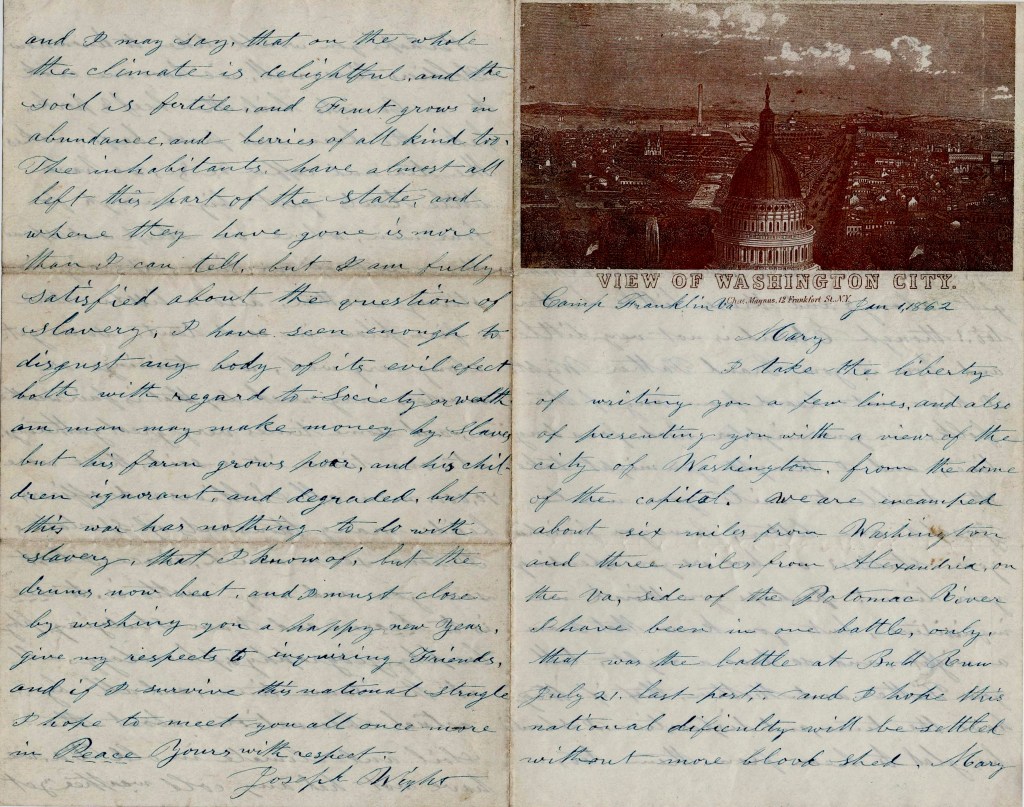 VIEW OF WASHINGTON CITY.
Chas. Magnus, 12 Frankfort St. N.Y.
Camp Franklin Va Jan 1, 1862
Mary
I take the liberty
of writing you a few lines, and also
of presenting you with a view of the
city of Washington, from the dome
of the capital. We are encamped
about six miles from Washington
and three miles from Alexandria, on
the Va, side of the Potomac River
I have been in one battle, only,
that was the battle at Bull Run
July 21. last past, and I hope this
national dificulty will be settled
without more blood shed. Mary
and I may say, that on the whole
the climate is delightful, and the
soil is fertile, and Fruit grows in
abundance, and berries of all kind too.
The inhabitants, have almost all
left this part of the state, and
where they have gone is more
than I can tell, but I am fully
satisfied about the question of
slavery, I have seen enough to
disgust any body of its evil efect
both with regard to Society or wealth
am man may make money by slaves
but his farm grows poor, and his chil-
dren ignorant and degraded, but
this war has nothing to do with
slavery, that I know of, but the
drums now beat, and I must close
by wishing you a happy new Year,
give my respects to inquiring Friends,
and if I survive this national strugle
I hope to meet you all once more
in Peace Yours with respect.
Joseph Wight